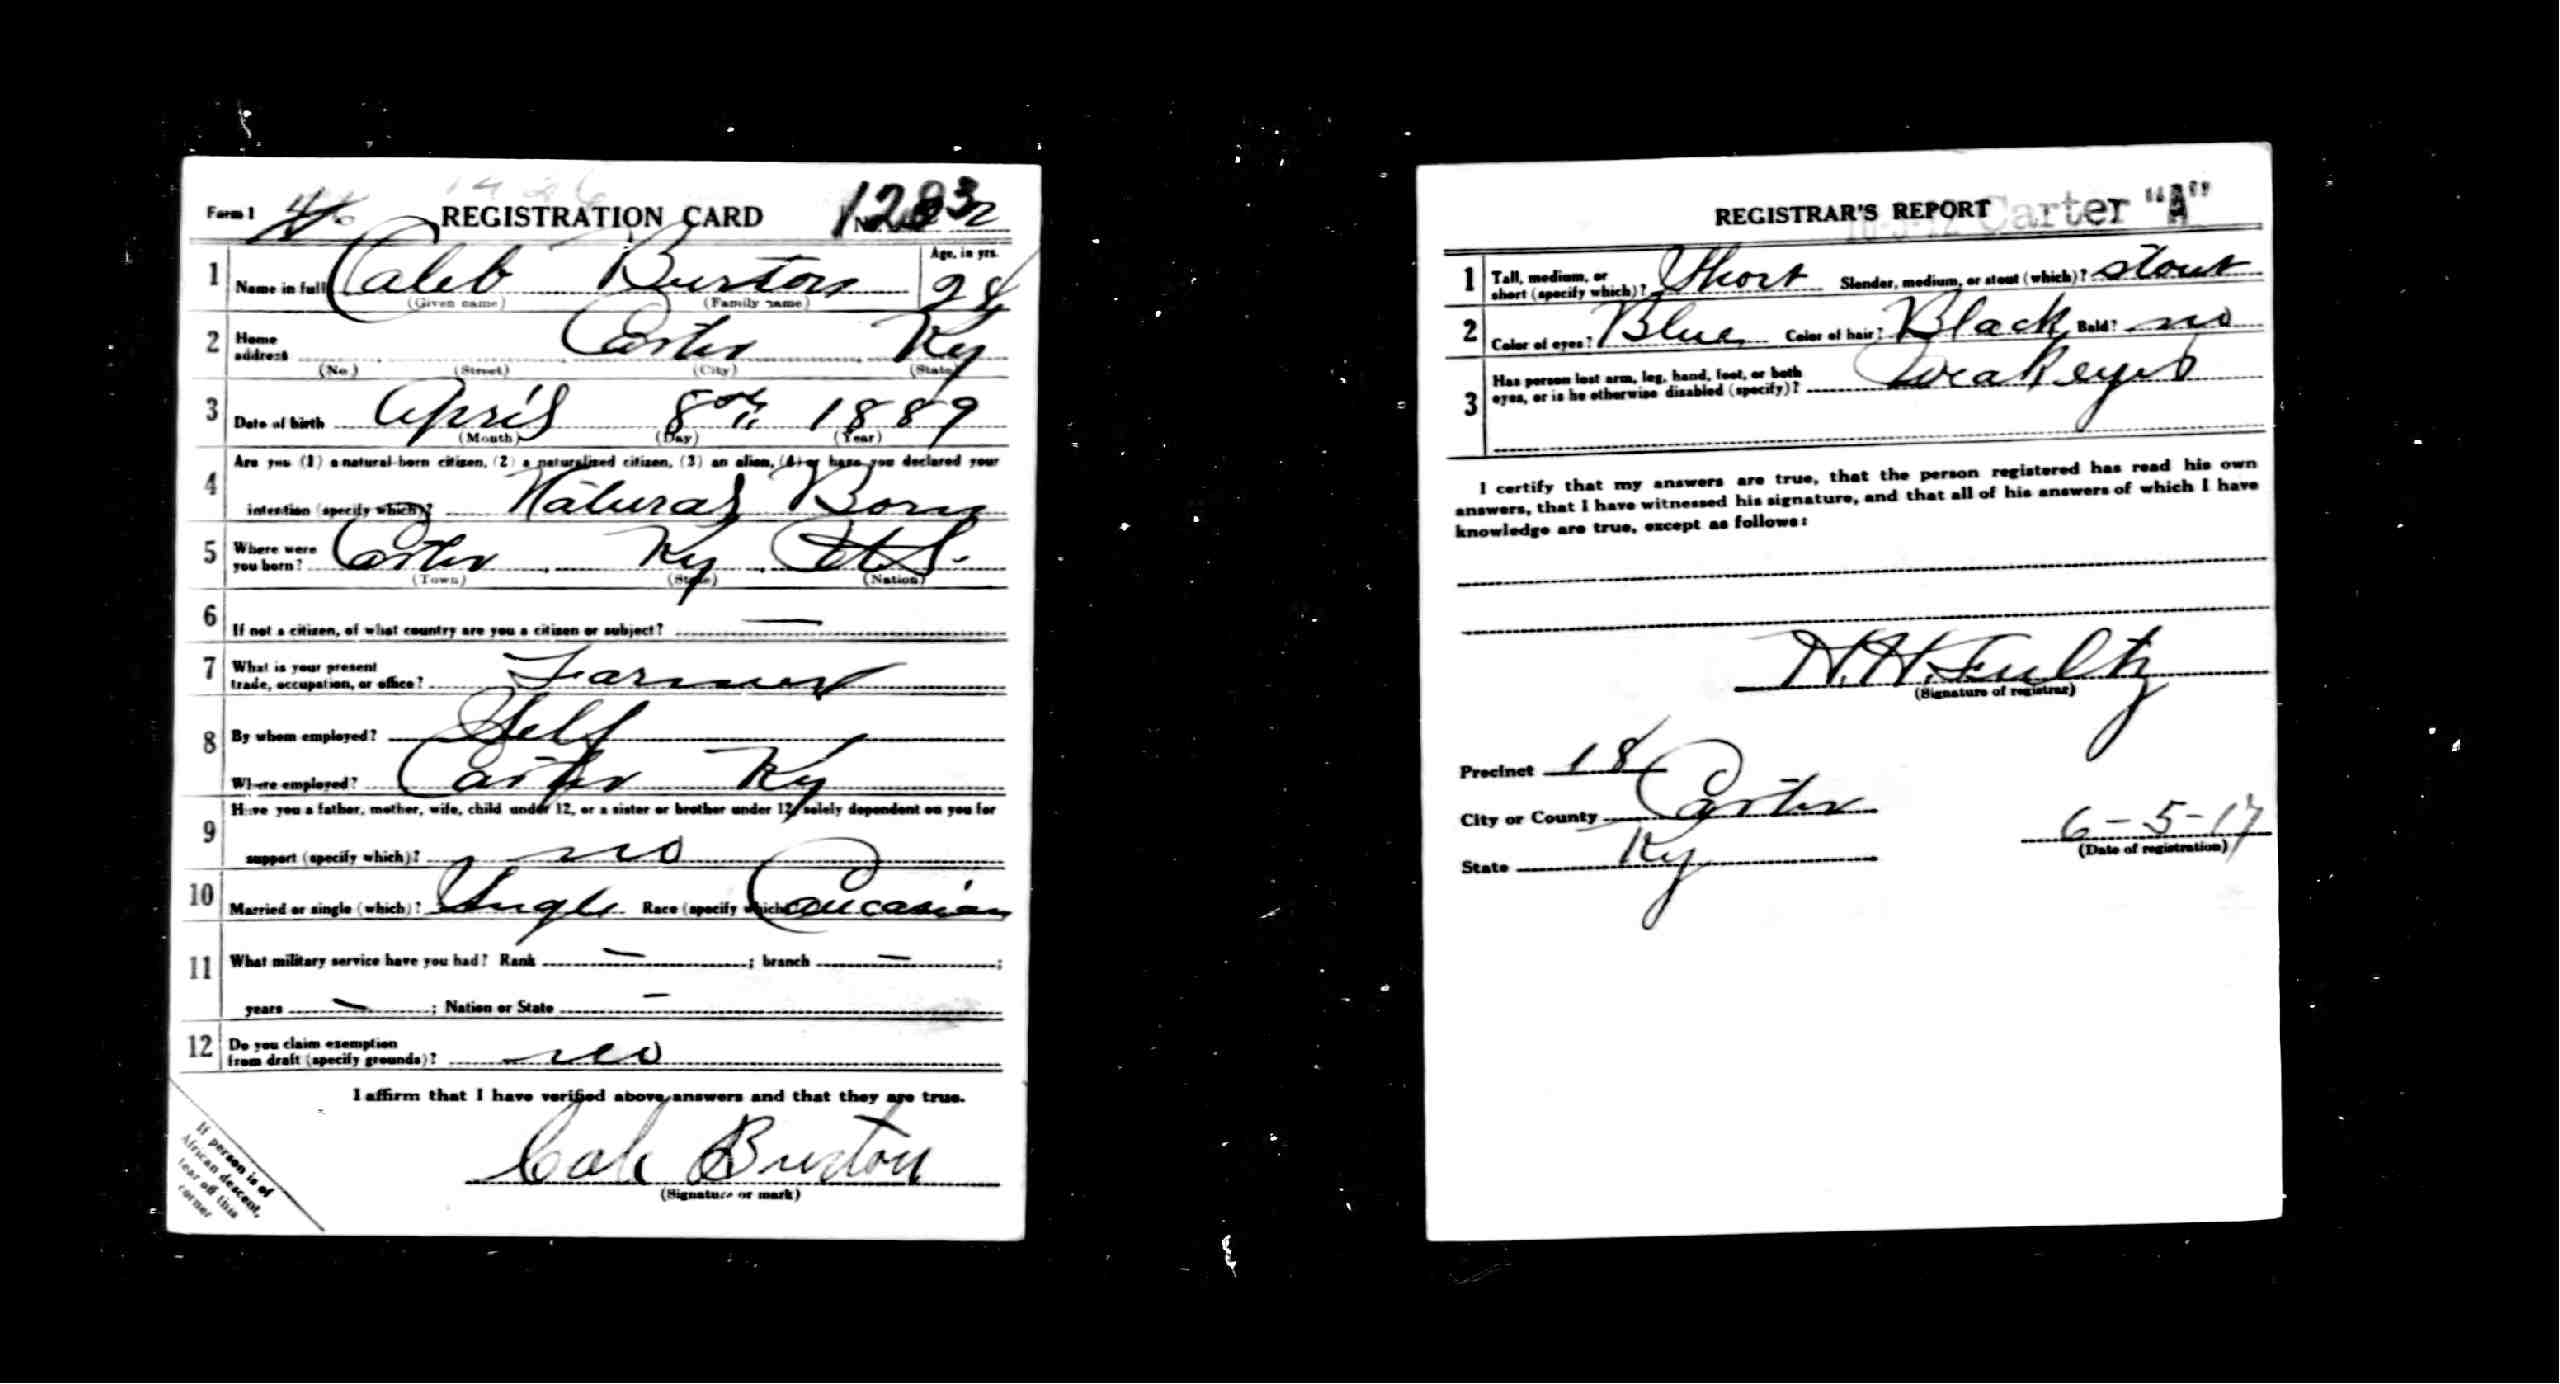 Form 1 REGISTRATION CARD No.
1 Name in full Caleb Burton Age, in yrs. 28
(Given name) (Family name)
2 Home address Carter Ky
(No.) (Street) (City) (State)
3 Date of birth April 8th 1889
(Month) (Day) (Year)
4 Are you (1) a natural-born citizen, (2) a naturalized citizen, (3) an alien, (4) or have you declared your
intention (specify which)? Natural Born
5 Where were you born? Carter Ky U.S.
(Town) (State) (Nation)
6 If not a citizen, of what country are you a citizen or subject? —
7 What is your present
trade, occupation, or office? Farmer
8 By whom employed? Self
Where employed? Carter Ky
9 Have you a father, mother, wife, child under 12, or a sister or brother under 12, solely dependent on you for
support (specify which)? no
10 Married or single (which)? Single Race (specify which) Caucasian
11 What military service have you had? Rank — ; branch — ;
years — ; Nation or State —
12 Do you claim exemption
from draft (specify grounds)? no
I affirm that I have verified above answers and that they are true.
Cale Burton
(Signature or mark)
If person is of
African descent,
tear off this
corner
REGISTRAR'S REPORT Carter "A"
1 Tall, medium, or
short (specify which)? Short Slender, medium, or stout (which)? stout
2 Color of eyes? Blue Color of hair? Black Bald? no
3 Has person lost arm, leg, hand, foot, or both
eyes, or is he otherwise disabled (specify)? Weak eyes
I certify that my answers are true, that the person registered has read his own
answers, that I have witnessed his signature, and that all of his answers of which I have
knowledge are true, except as follows:
H. H. Fultz
(Signature of registrar)
Precinct 18
City or County Carter
State Ky
6-5-17
(Date of registration)